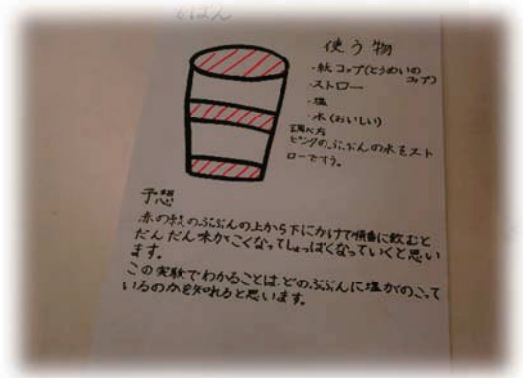 使う物
・紙コップ(とうめいのコップ)
・ストロー
・塩
・水(おいしい)
調べ方
ピンクのぶぶんの水をスト
ローですう。
予想
赤の線のぶぶんの上から下にかけて順番に飲むと
だんだん味がこくなってしょっぱくなっていくと思い
ます。
この実験でわかることは、どのぶぶんに塩がのこって
いるのかを知れると思います。